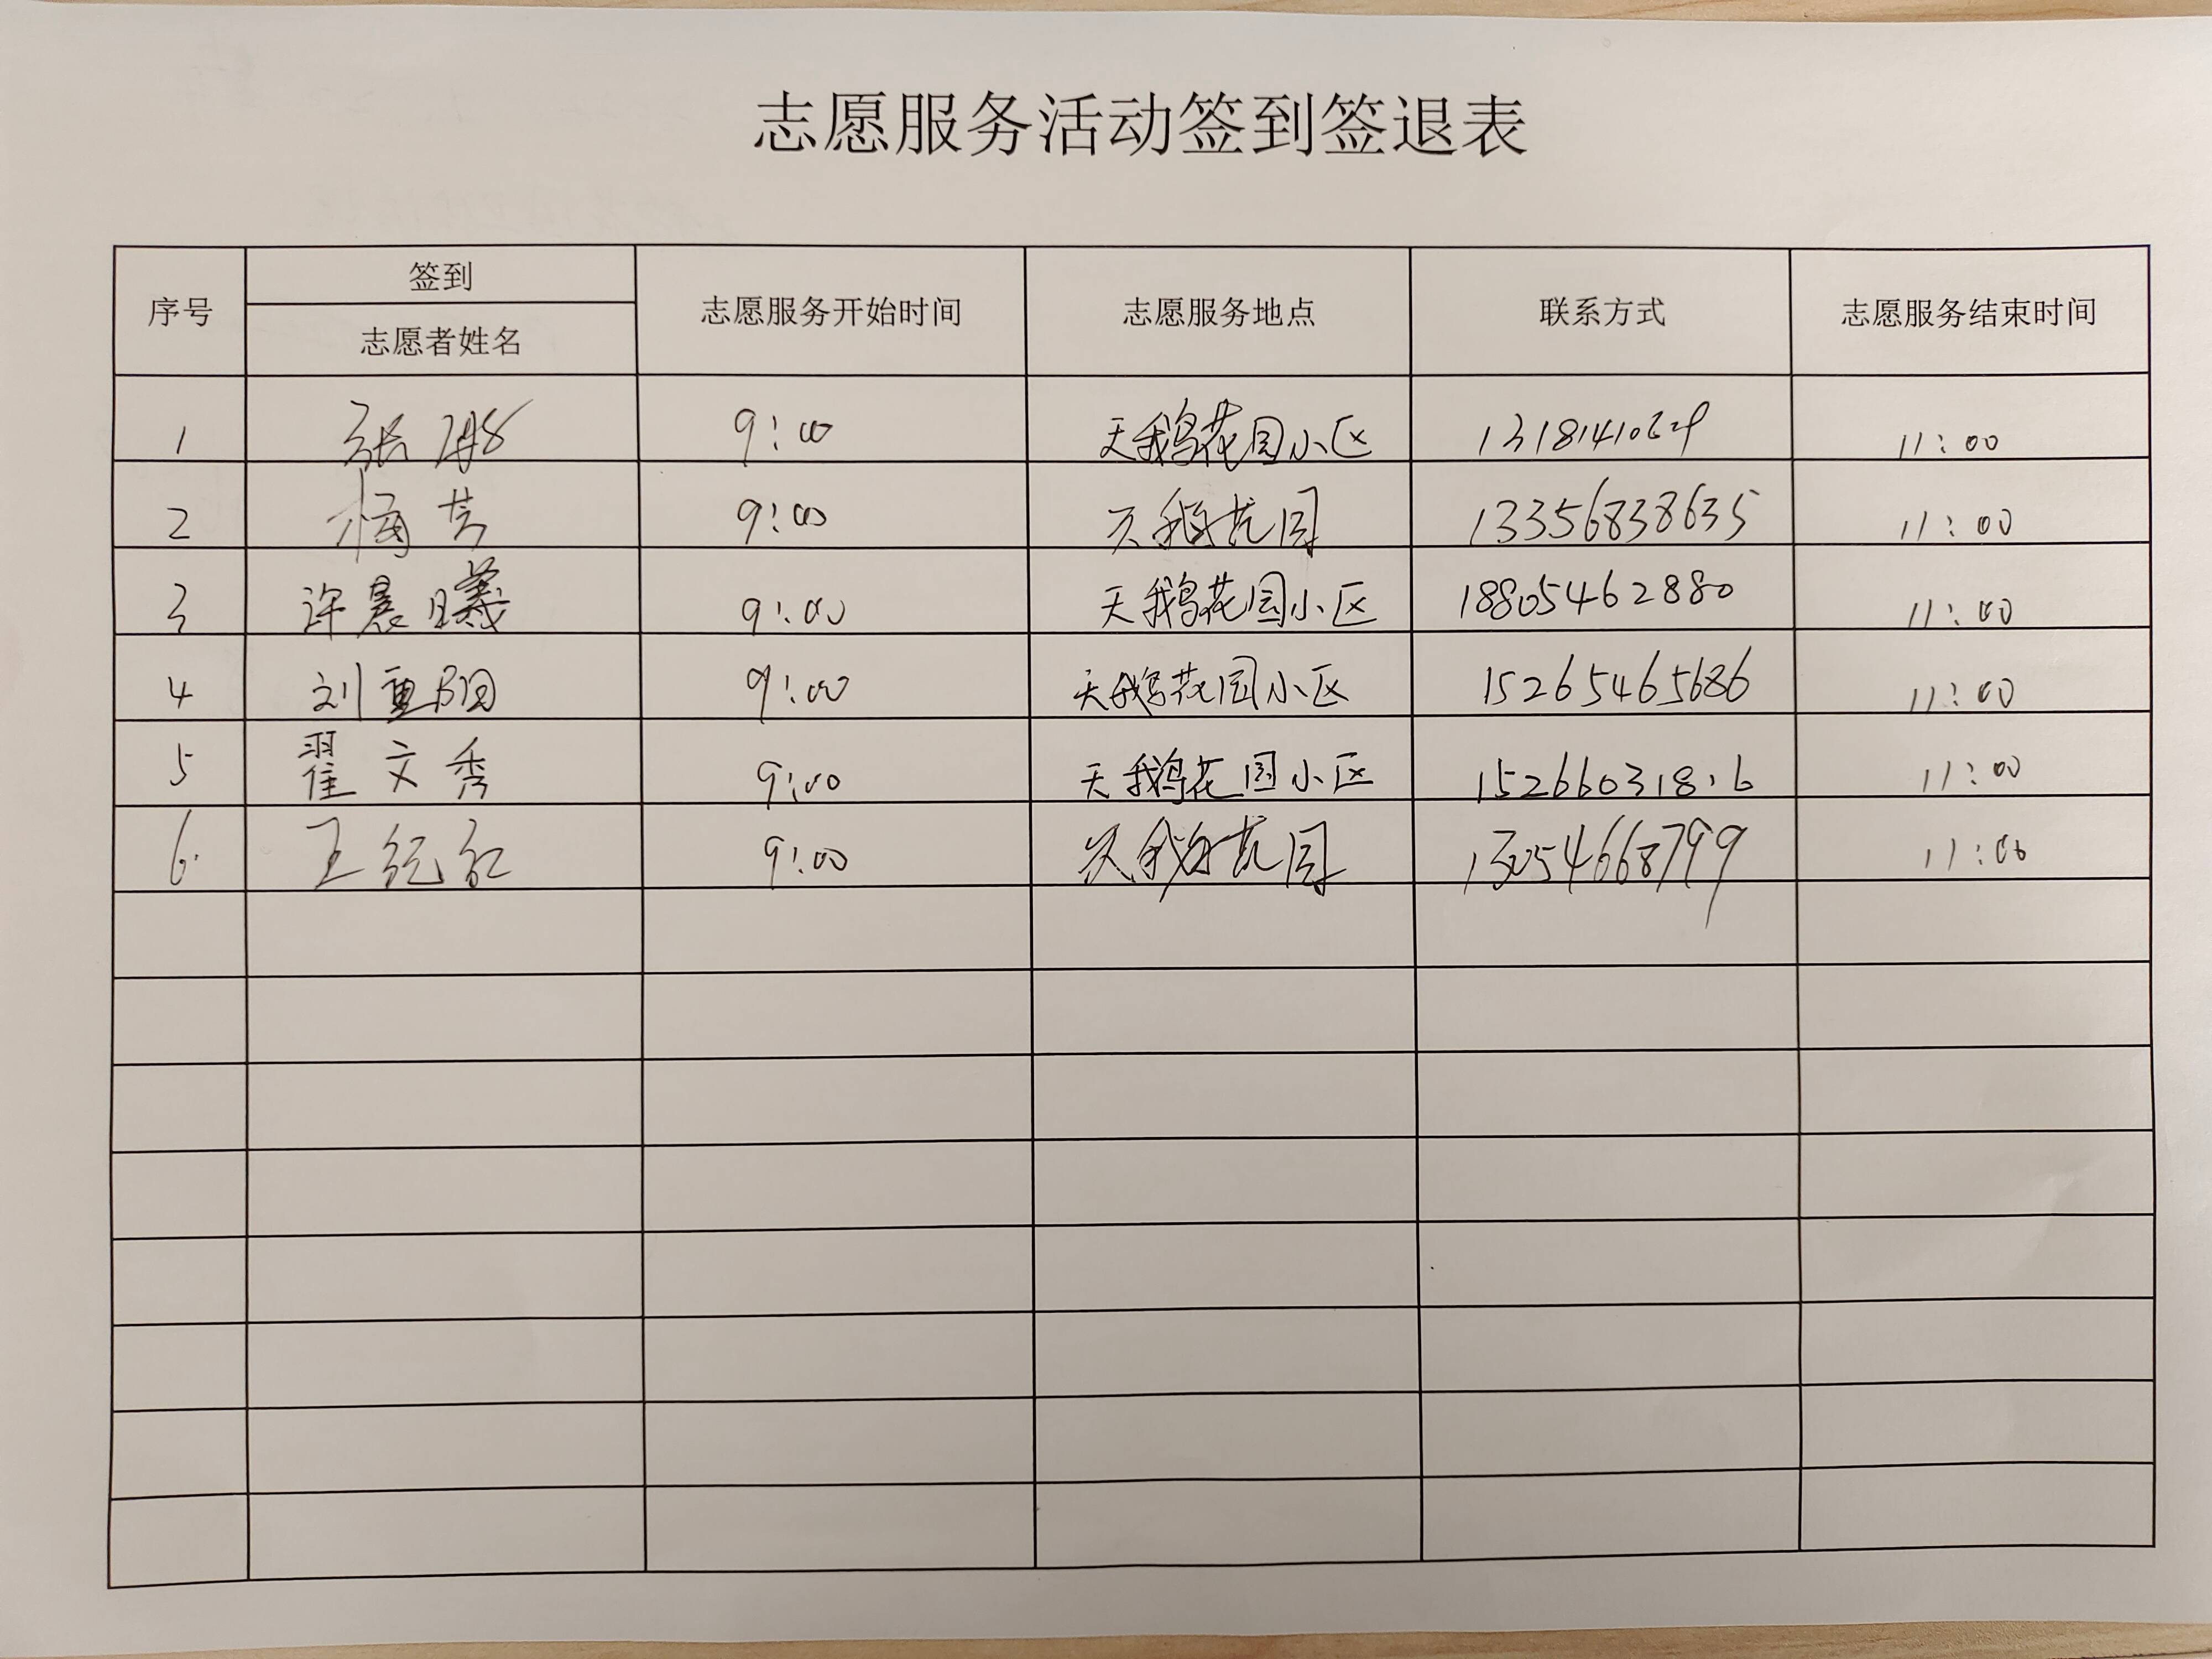 志愿服务活动签到签退表
序号 签到 志愿者姓名 志愿服务开始时间 志愿服务地点 联系方式 志愿服务结束时间
1 张 9:00 天鹅花园小区 11:00
2 梅芳 9:00 天鹅花园 13356838635 11:00
3 许晨曦 9:00 天鹅花园小区 18805462880 11:00
4 刘重阳 9:00 天鹅花园小区 15265465686 11:00
5 翟文秀 9:00 天鹅花园小区 15266031816 11:00
6 王纪红 9:00 天鹅花园 13054668799 11:00